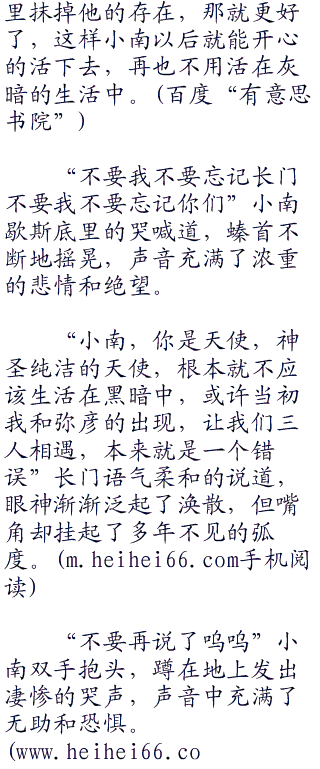 里抹掉他的存在，那就更好
了，这样小南以后就能开心
的活下去，再也不用活在灰
暗的生活中。(百度“有意思
书院”)
“不要我不要忘记长门
不要我不要忘记你们”小南
歇斯底里的哭喊道，螓首不
断地摇晃，声音充满了浓重
的悲情和绝望。
“小南，你是天使，神
圣纯洁的天使，根本就不应
该生活在黑暗中，或许当初
我和弥彦的出现，让我们三
人相遇，本来就是一个错
误”长门语气柔和的说道，
眼神渐渐泛起了涣散，但嘴
角却挂起了多年不见的弧
度。(m.heihei66.com手机阅
读)
“不要再说了呜呜”小
南双手抱头，蹲在地上发出
凄惨的哭声，声音中充满了
无助和恐惧。
(www.heihei66.co